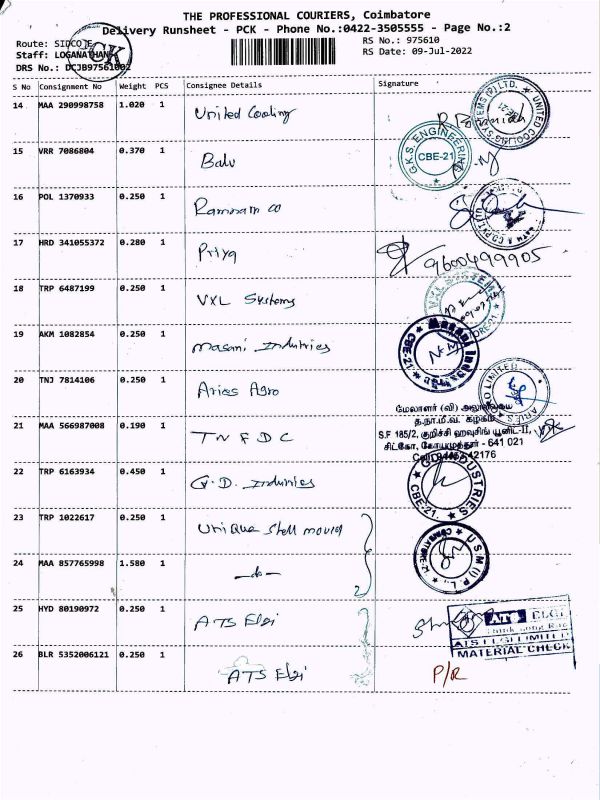 THE PROFESSIONAL COURIERS, Coimbatore
Delivery Runsheet - PCK - Phone No.:0422-3505555 - Page No.:2
Route: SIDCO
Staff: LOGANATHAN
DRS No.: DCJB97561002
PCK
RS No.: 975610
RS Date: 09-Jul-2022
S No Consignment No Weight PCS Consignee Details Signature
14 MAA 290998758 1.020 1 United Cooling
UNITED COOLING SYSTEMS (P) LTD. CBE-21
15 VRR 7086804 0.370 1 Balu
G.K.S. ENGINEERING CBE-21
16 POL 1370933 0.250 1 Ramnam co
17 HRD 341055372 0.280 1 Priya 9600499905
18 TRP 6487199 0.250 1 VXL Systems
VXL SYSTEMS CBE-21
19 AKM 1082854 0.250 1 Masani Industries
CBE-21
20 TNJ 7814106 0.250 1 Aries Agro
ARIES AGRO LIMITED
மேலாளர் (வி) அலுவலகம்
த.நா.மீ.வ. கழகம்
21 MAA 566987008 0.190 1 TNFDC
S.F 185/2, குறிச்சி ஹவுசிங் யூனிட்-II,
சிட்கோ, கோயமுத்தூர் - 641 021
22 TRP 6163934 0.450 1 G.D. Industries
G.D. INDUSTRIES CBE-21.
23 TRP 1022617 0.250 1 Unique Shell mould
24 MAA 857765998 1.580 1 —do—
2
U S M (I) P L., COIMBATORE-21
25 HYD 80190972 0.250 1 ATS Elgi
ATS ELGI
ATS ELGI LIMITED
MATERIAL CHECK
26 BLR 5352006121 0.250 1 ATS Elgi P/R